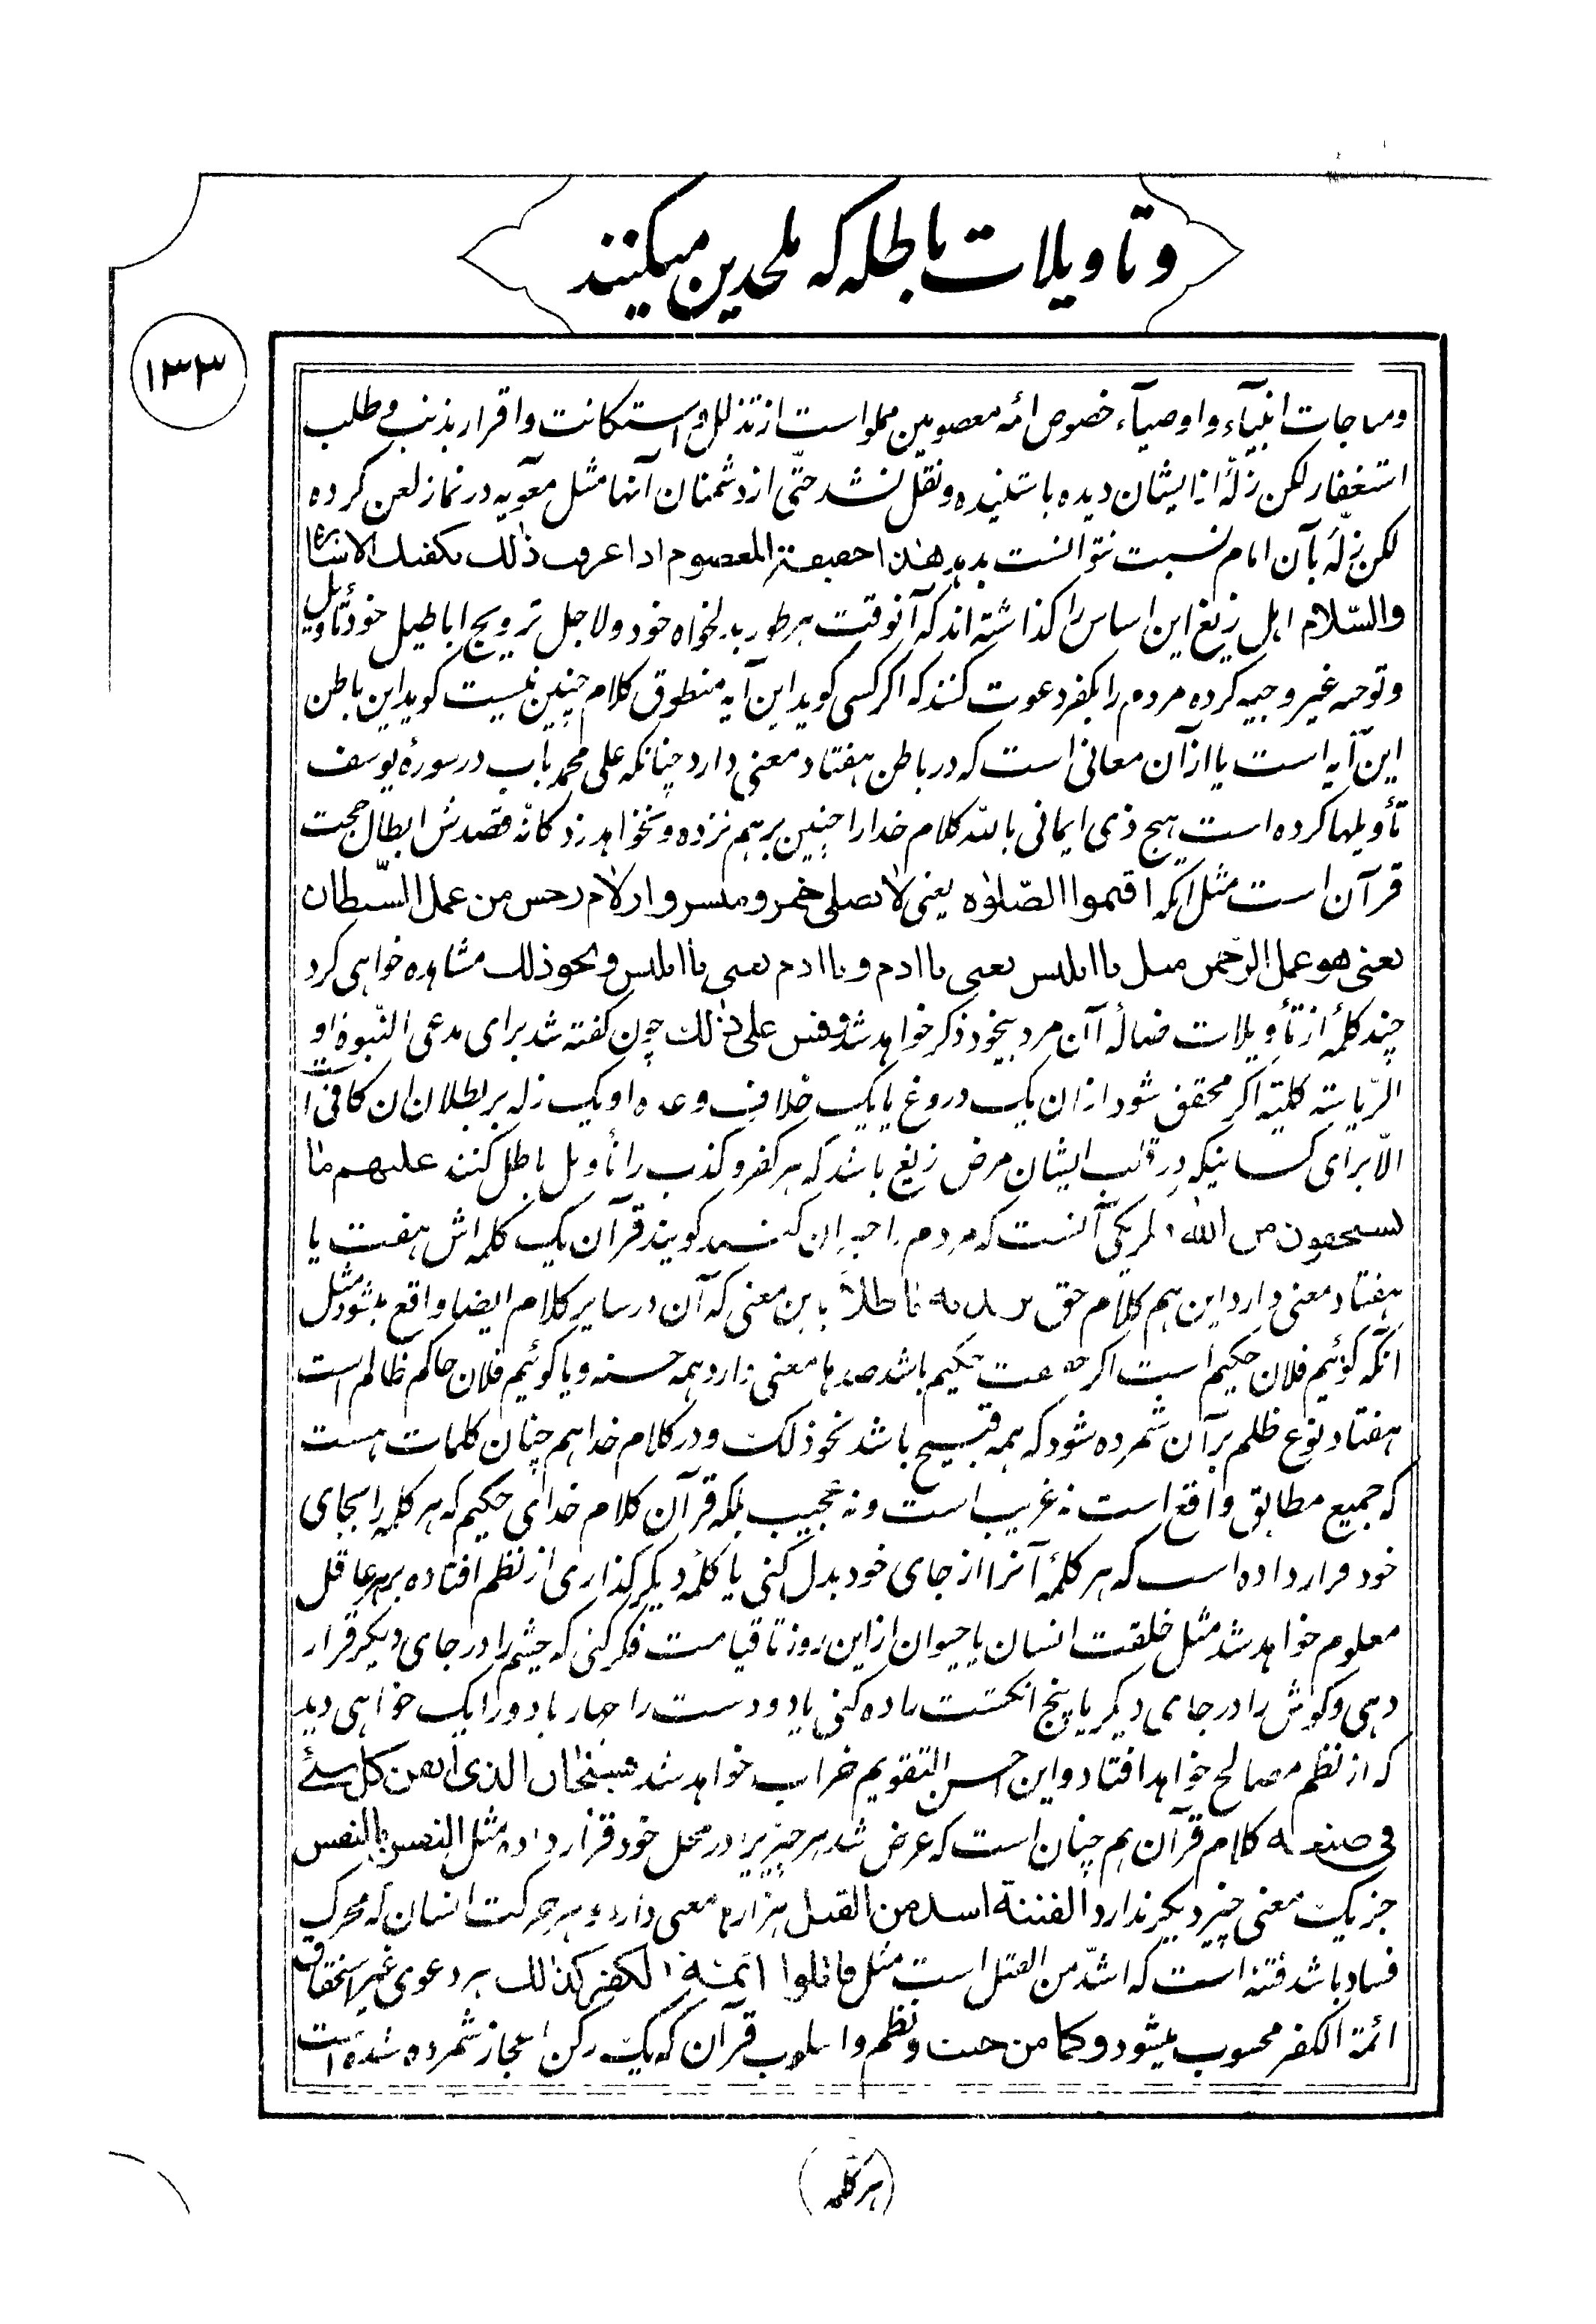 وتاویلات باطله که ملحدین میکنند
۱۳۳
ومناجات انبیآء واوصیآء خصوص ائمه معصومین مملو است از تذلل و استکانت واقرار بذنب و طلب
استغفار لکن زلّهٔ از ایشان دیده باشنیده ونقل نشد حتّی از دشمنان آنها مثل معویه در نماز لعن کرده
لکن زلّهٔ بآن امام نسبت نتوانست بدهد هذا حقیقة المعصوم اذا عرف ذلک یکفیک الاشارة
والسّلام اهل زیغ این اساس را کذاشته‌اند که آنوقت هر طور بدلخواه خود ولاجل ترویج اباطیل خود تأویل
وتوجیه غیر وجیه کرده مردم را بکفر دعوت کنند که اکر کسی کوید این آیه منطوق کلام چنین نیست کوید این باطن
این آیه است یا از آن معانی است که در باطن هفتاد معنی دارد چنانکه علی محمد باب در سورهٔ یوسف
تأویلها کرده است هیچ ذی ایمانی بالله کلام خدا را چنین برهم نزده ونخواهد زد کانّه قصدش ابطال حجت
قرآن است مثل اینکه اقیموا الصّلوة یعنی لا تصلی خمر و میسر و ازلام رجس من عمل الشّیطان
یعنی هو عمل الرّحمن مثل یا ابلیس یعنی یا ادم و یا ادم یعنی یا ابلیس و نحو ذلک مشاهده خواهی کرد
چند کلمهٔ از تأویلات ضالهٔ آن مرد بیخود ذکر خواهد شد وقس علی ذلک چون کفته شد برای مدعی النّبوة او
الرّیاسة کلیّة اکر محقق شود از ان یک دروغ یا یک خلاف وعده او یک زله بر بطلان ان کافی است
الّا برای کسانیکه در قلب ایشان مرض زیغ باشد که هر کفر و کذب را تأویل باطل کنند علیهم ما
یستحقون من الله دیگری آنست که مردم را حیران کنند کویند قرآن یک کلمه اش هفت یا
هفتاد معنی دارد این هم کلام حق یرید به باطلاً باین معنی که آن در سایر کلام ایضا واقع میشود مثل
آنکه کوئیم فلان حکیم است اکر حکیم باشد صدها معنی دارد همه حسنه ویا کوئیم فلان حاکم ظالم است
هفتاد نوع ظلم بر آن شمرده شود که همه قبیح باشد نحو ذلک ودر کلام خدا هم چنان کلمات هست
که جمیع مطابق واقع است نه غریب است ونه عجیب بلکه قرآن کلام خدای حکیم که هر کلمه را بجای
خود قرار داده است که هر کلمهٔ آنرا از جای خود بدل کنی یا کلمهٔ دیکر کذاری از نظم افتاده بر هر عاقل
معلوم خواهد شد مثل خلقت انسان یا حیوان از این روز تا قیامت فکر کنی که چشم را در جای دیکر قرار
دهی وکوش را در جای دیکر یا پنج انکشت را ده کنی یا دو دست را چهار یا دو را یک خواهی دید
که از نظم مصالح خواهد افتاد واین احسن التقویم خراب خواهد شد فسبحان الذی اتقن کل شیء
فی صنعه کلام قرآن هم چنان است که عرض شد هر چیز را در محل خود قرار داده مثل النفس بالنفس
جز یک معنی چیز دیکر ندارد الفتنة اشد من القتل هزارها معنی دارد و هر حرکت انسان که محرک
فساد باشد فتنه است که اشدّ من القتل است مثل قاتلوا ائمة الکفر کذلک هر دعوی غیر استحقاق
ائمة الکفر محسوب میشود وکما من حیث ونظم واسلوب قرآن که یک رکن اعجاز شمرده شده است
(هر کلمه)